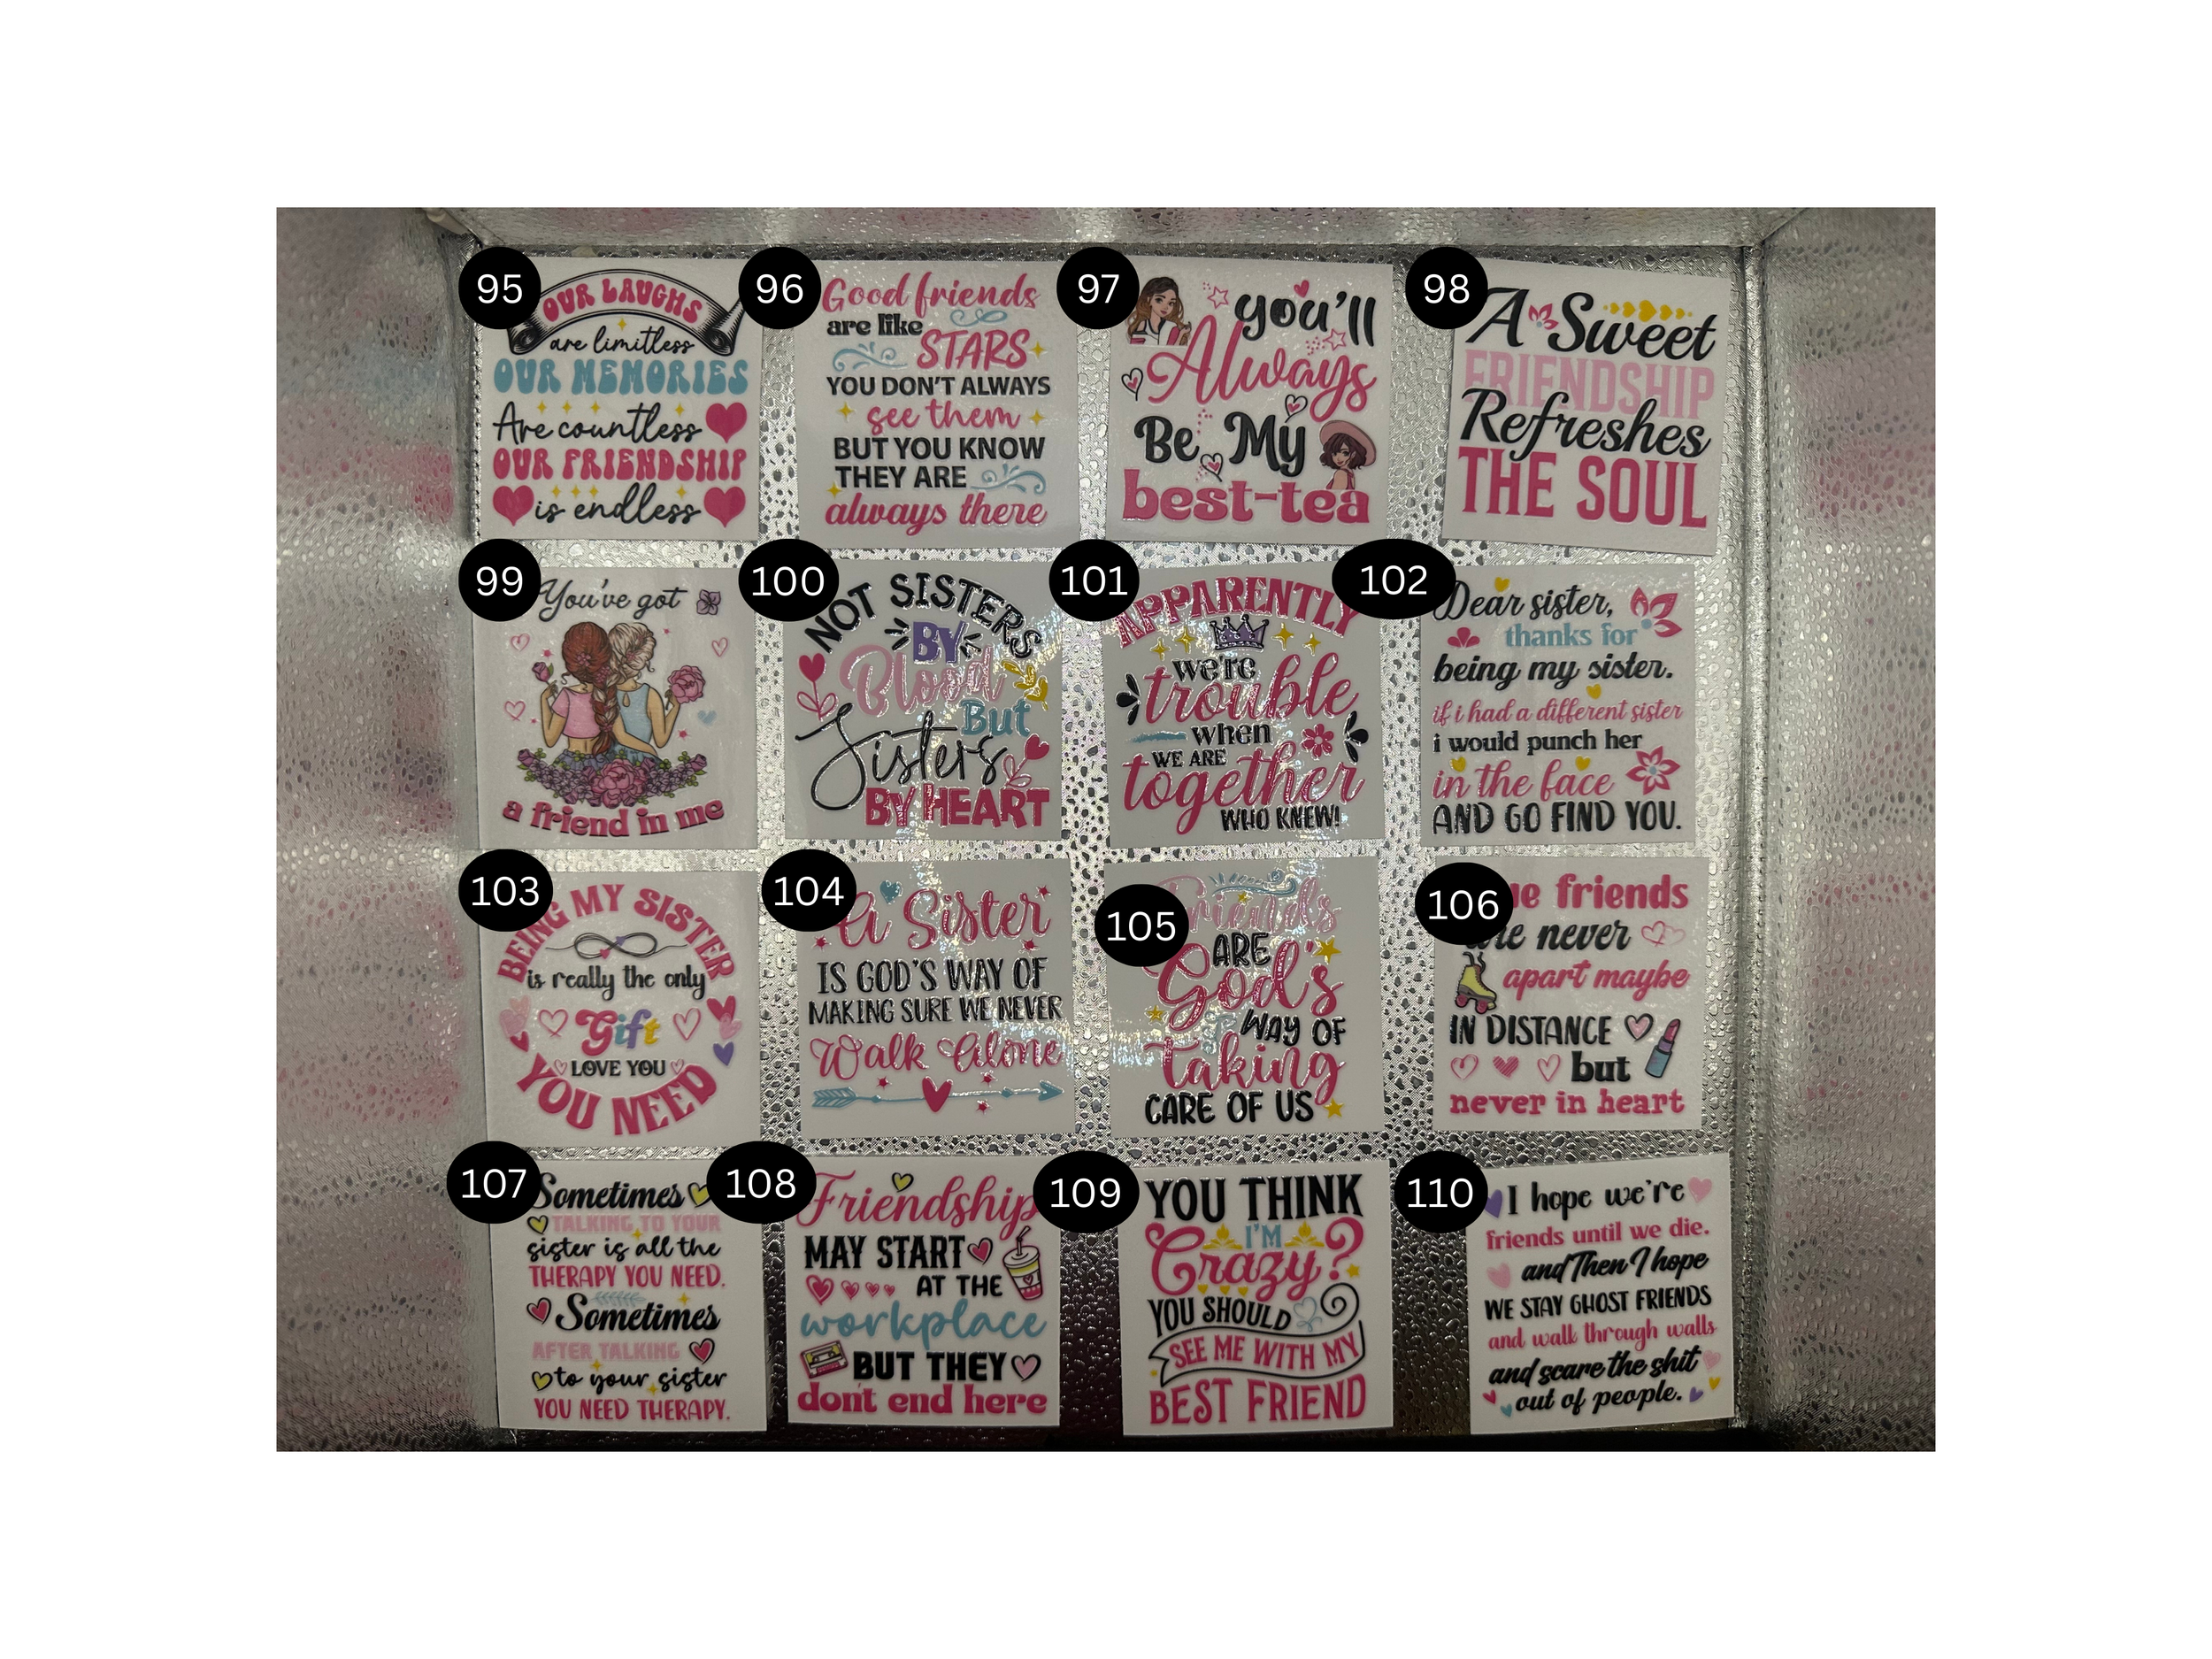 95
OUR LAUGHS
are limitless
OUR MEMORIES
Are countless
OUR FRIENDSHIP
is endless
96
Good friends
are like
STARS
YOU DON'T ALWAYS
see them
BUT YOU KNOW
THEY ARE
always there
97
you'll
Always
Be My
best-tea
98
A Sweet
FRIENDSHIP
Refreshes
THE SOUL
99
You've got
a friend in me
100
NOT SISTERS
BY
Blood
But
Sisters
BY HEART
101
APPARENTLY
we're
trouble
when
WE ARE
together
WHO KNEW!
102
Dear sister,
thanks for
being my sister.
if i had a different sister
i would punch her
in the face
AND GO FIND YOU.
103
BEING MY SISTER
is really the only
Gift
LOVE YOU
YOU NEED
104
A Sister
IS GOD'S WAY OF
MAKING SURE WE NEVER
Walk Alone
105
Friends
ARE
God's
WAY OF
taking
CARE OF US
106
friends
never
apart maybe
IN DISTANCE
but
never in heart
107
Sometimes
TALKING TO YOUR
sister is all the
THERAPY YOU NEED.
Sometimes
AFTER TALKING
to your sister
YOU NEED THERAPY.
108
Friendship
MAY START
AT THE
workplace
BUT THEY
don't end here
109
YOU THINK
I'M
Crazy?
YOU SHOULD
SEE ME WITH MY
BEST FRIEND
110
I hope we're
friends until we die.
and Then I hope
WE STAY GHOST FRIENDS
and walk through walls
and scare the shit
out of people.